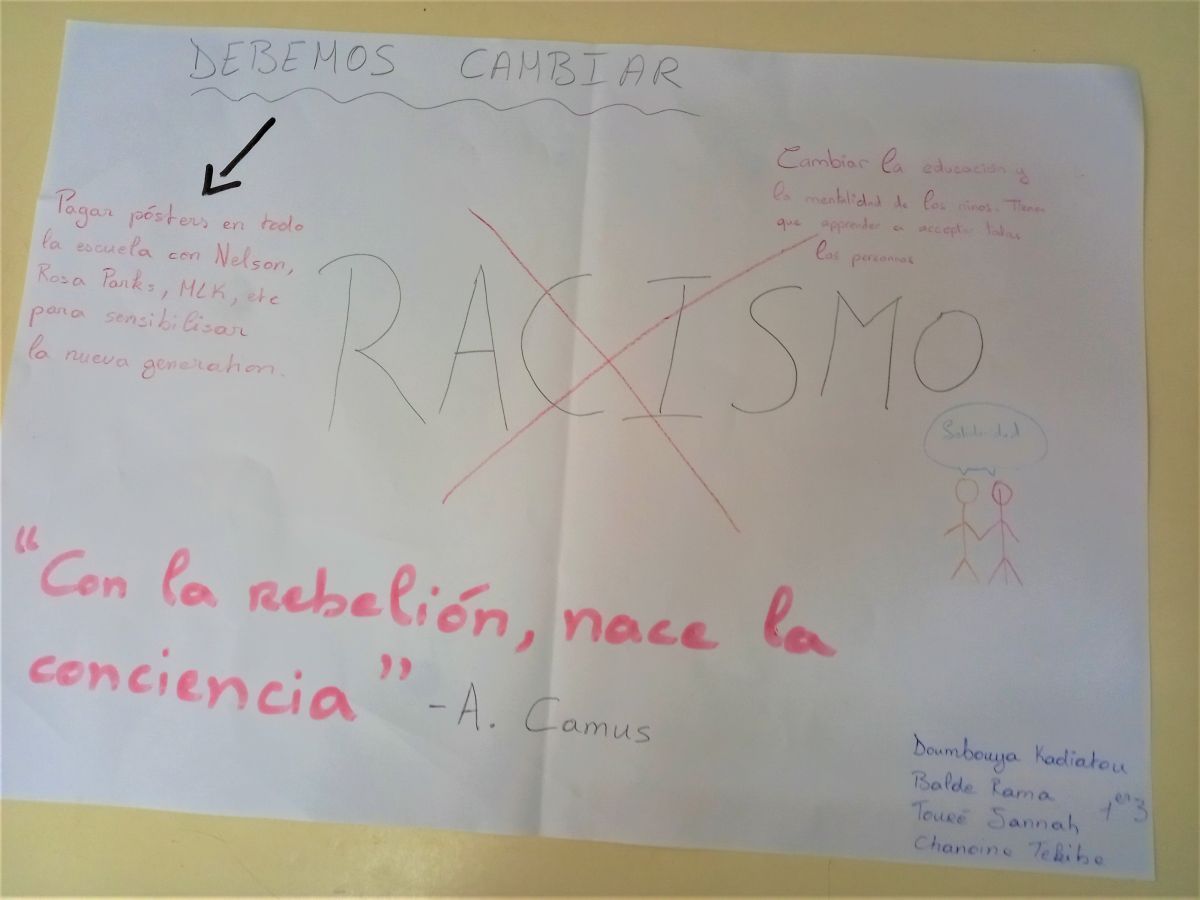 DEBEMOS CAMBIAR
Pagar pósters en todo
la escuela con Nelson,
Rosa Parks, MLK, etc
para sensibilisar
la nueva generation.
Cambiar la educación y
la mentalidad de los ninos. Tienen
que apprender a accepter todas
las personnas
RACISMO
Solidaridad
"Con la rebelión, nace la
conciencia" - A. Camus
Doumbouya Kadiatou
Balde Rama 1er3
Touré Sannah
Chanoine